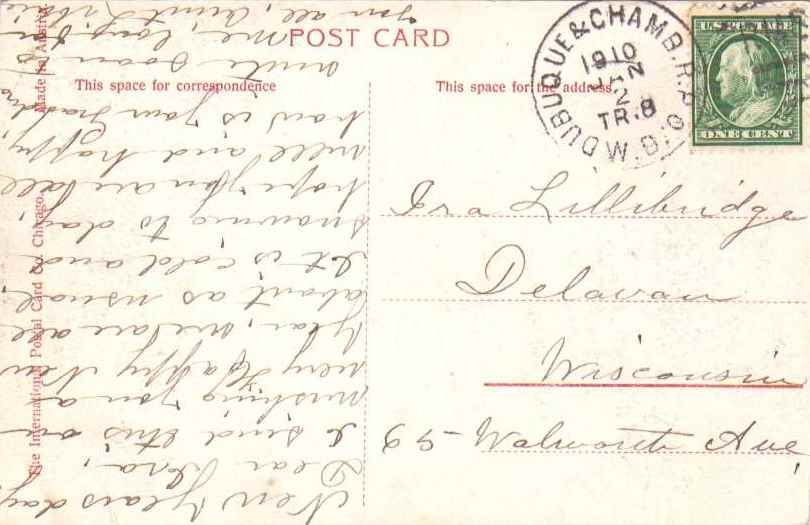 POST CARD
This space for correspondence
This space for the address.
DUBUQUE & CHAMB. R.P.O.
1910
JAN
2
TR.8
W.D.
U.S. POSTAGE
ONE CENT
Ira Lillibridge
Delavan
Wisconsin
65- Walworth Ave
New Years day
Dear
I send this on
wishing you a
very Happy New
Year, we are
about as usual.
It is cold and
snowing to day
hope you are all
well and happy
how is your Grandma
write soon to
me,
you all, Aunt
The International Postal Card Co. Chicago.
Made in Austria